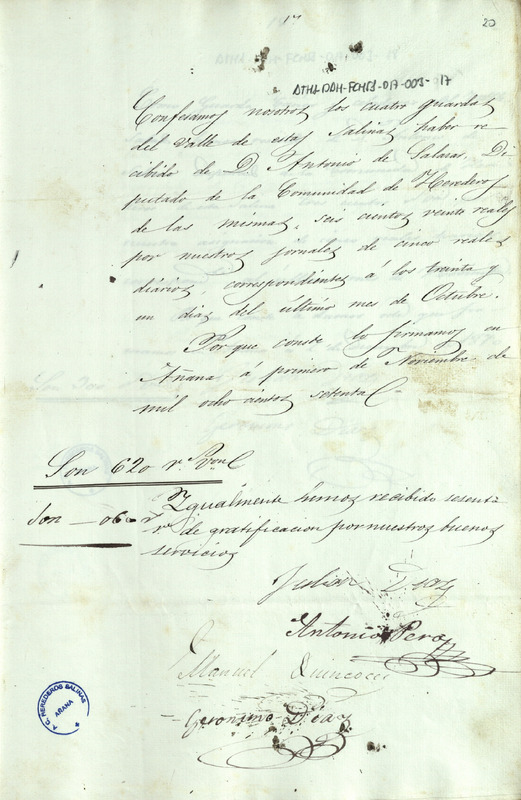 17
20
ATHA-DAH-FCHSJ-017-003-17
Confesamos nosotros los cuatro guardas
del Valle de estas Salinas haber re
cibido de D. Antonio de Salazar, Di
putado de la Comunidad de Herederos
de las mismas, seis cientos veinte reales
por nuestros jornales de cinco reales
diários, correspondientes á los treinta y
un dias del último mes de Octubre.
Por que conste lo firmamos en
Añana á primero de Noviembre de
mil ocho cientos setenta
Son 620 r.s Von
Ygualmente hemos recibido sesenta
Son 060 r
r.s de gratificacion por nuestros buenos
servicios
Julian Diaz
Antonio Perez
Manuel Quincoces
Geronimo Diaz
A.C. HEREDEROS SALINAS
AÑANA